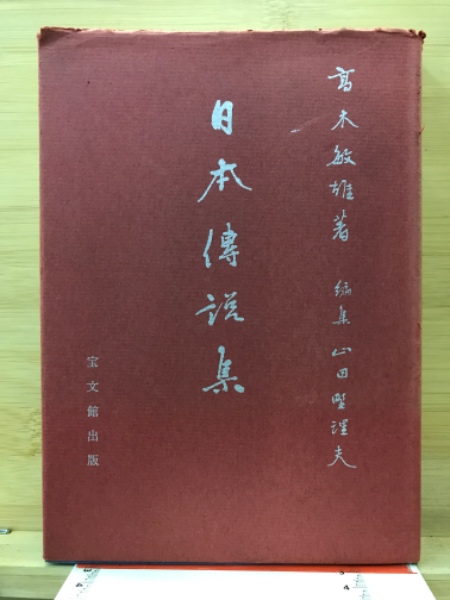 高木敏雄著 編集 山田野理夫
日本傳説集
宝文館出版